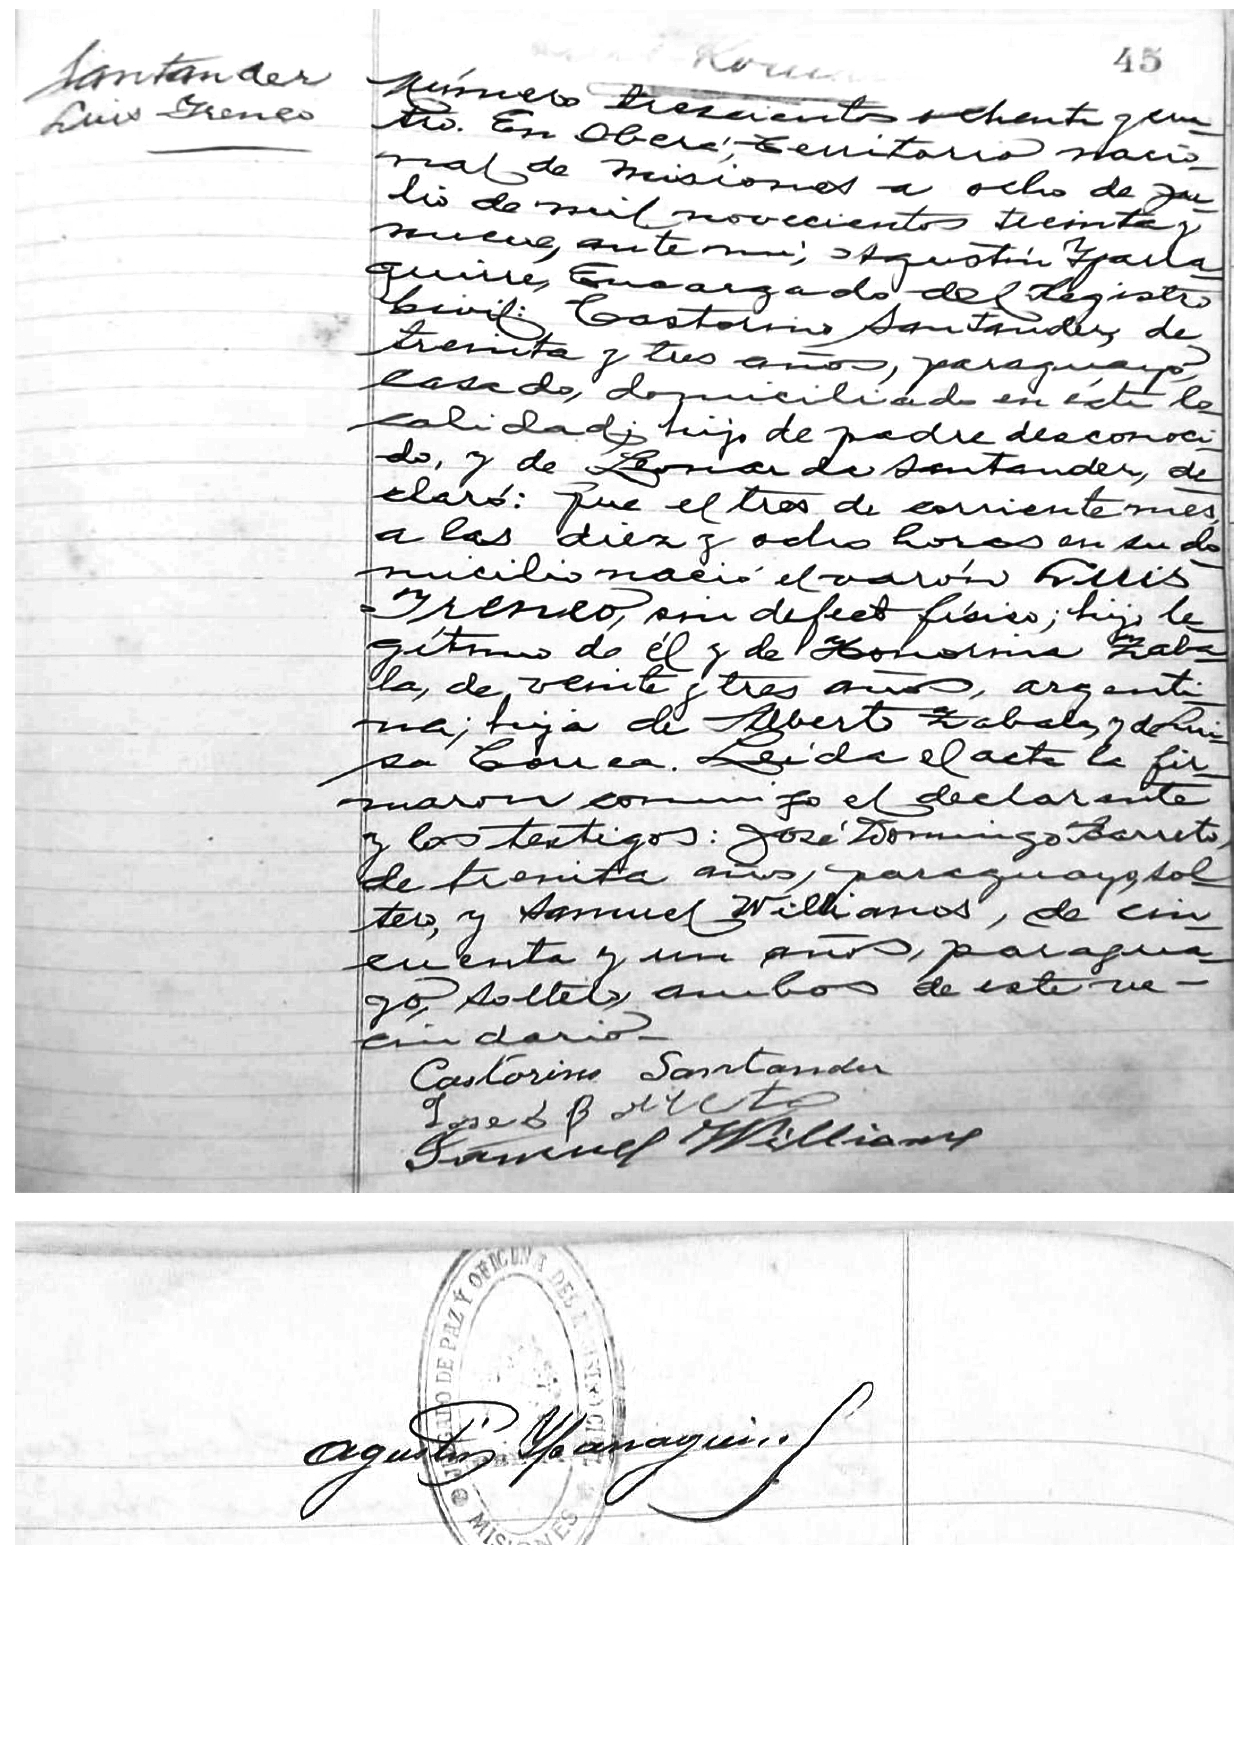 45
Santander
Luis Ireneo
Número trescientos ochenta y cua-
tro. En Oberá, Territorio nacio-
nal de Misiones a ocho de ju-
lio de mil novecientos treinta y
nueve, ante mí, Agustín Yparra-
guirre, Encargado del Registro
Civil: Castorino Santander, de
treinta y tres años, paraguayo,
casado, domiciliado en esta lo-
calidad, hijo de padre desconoci-
do, y de Leonarda Santander, de-
claró: Que el tres de corriente mes
a las diez y ocho horas en su do-
micilio nació el varón Luis
Ireneo, sin defect físico; hijo le-
gítimo de él y de Honorina Zaba-
la, de veinte y tres años, argenti-
na; hija de Alberto Zabala, y de Lui-
sa Correa. Leída el acta la fir-
maron conmigo el declarante
y los testigos: José Domingo Barreto,
de treinta años, paraguayo, sol-
tero, y Samuel Willianos, de cin-
cuenta y un años, paragua-
yo, soltero, ambos de este ve-
cindario-
Castorino Santander
Jose D Barreto
Samuel Williams
JUZGADO DE PAZ Y OFICINA DEL REGISTRO CIVIL
MISIONES
Agustín Yparraguirre